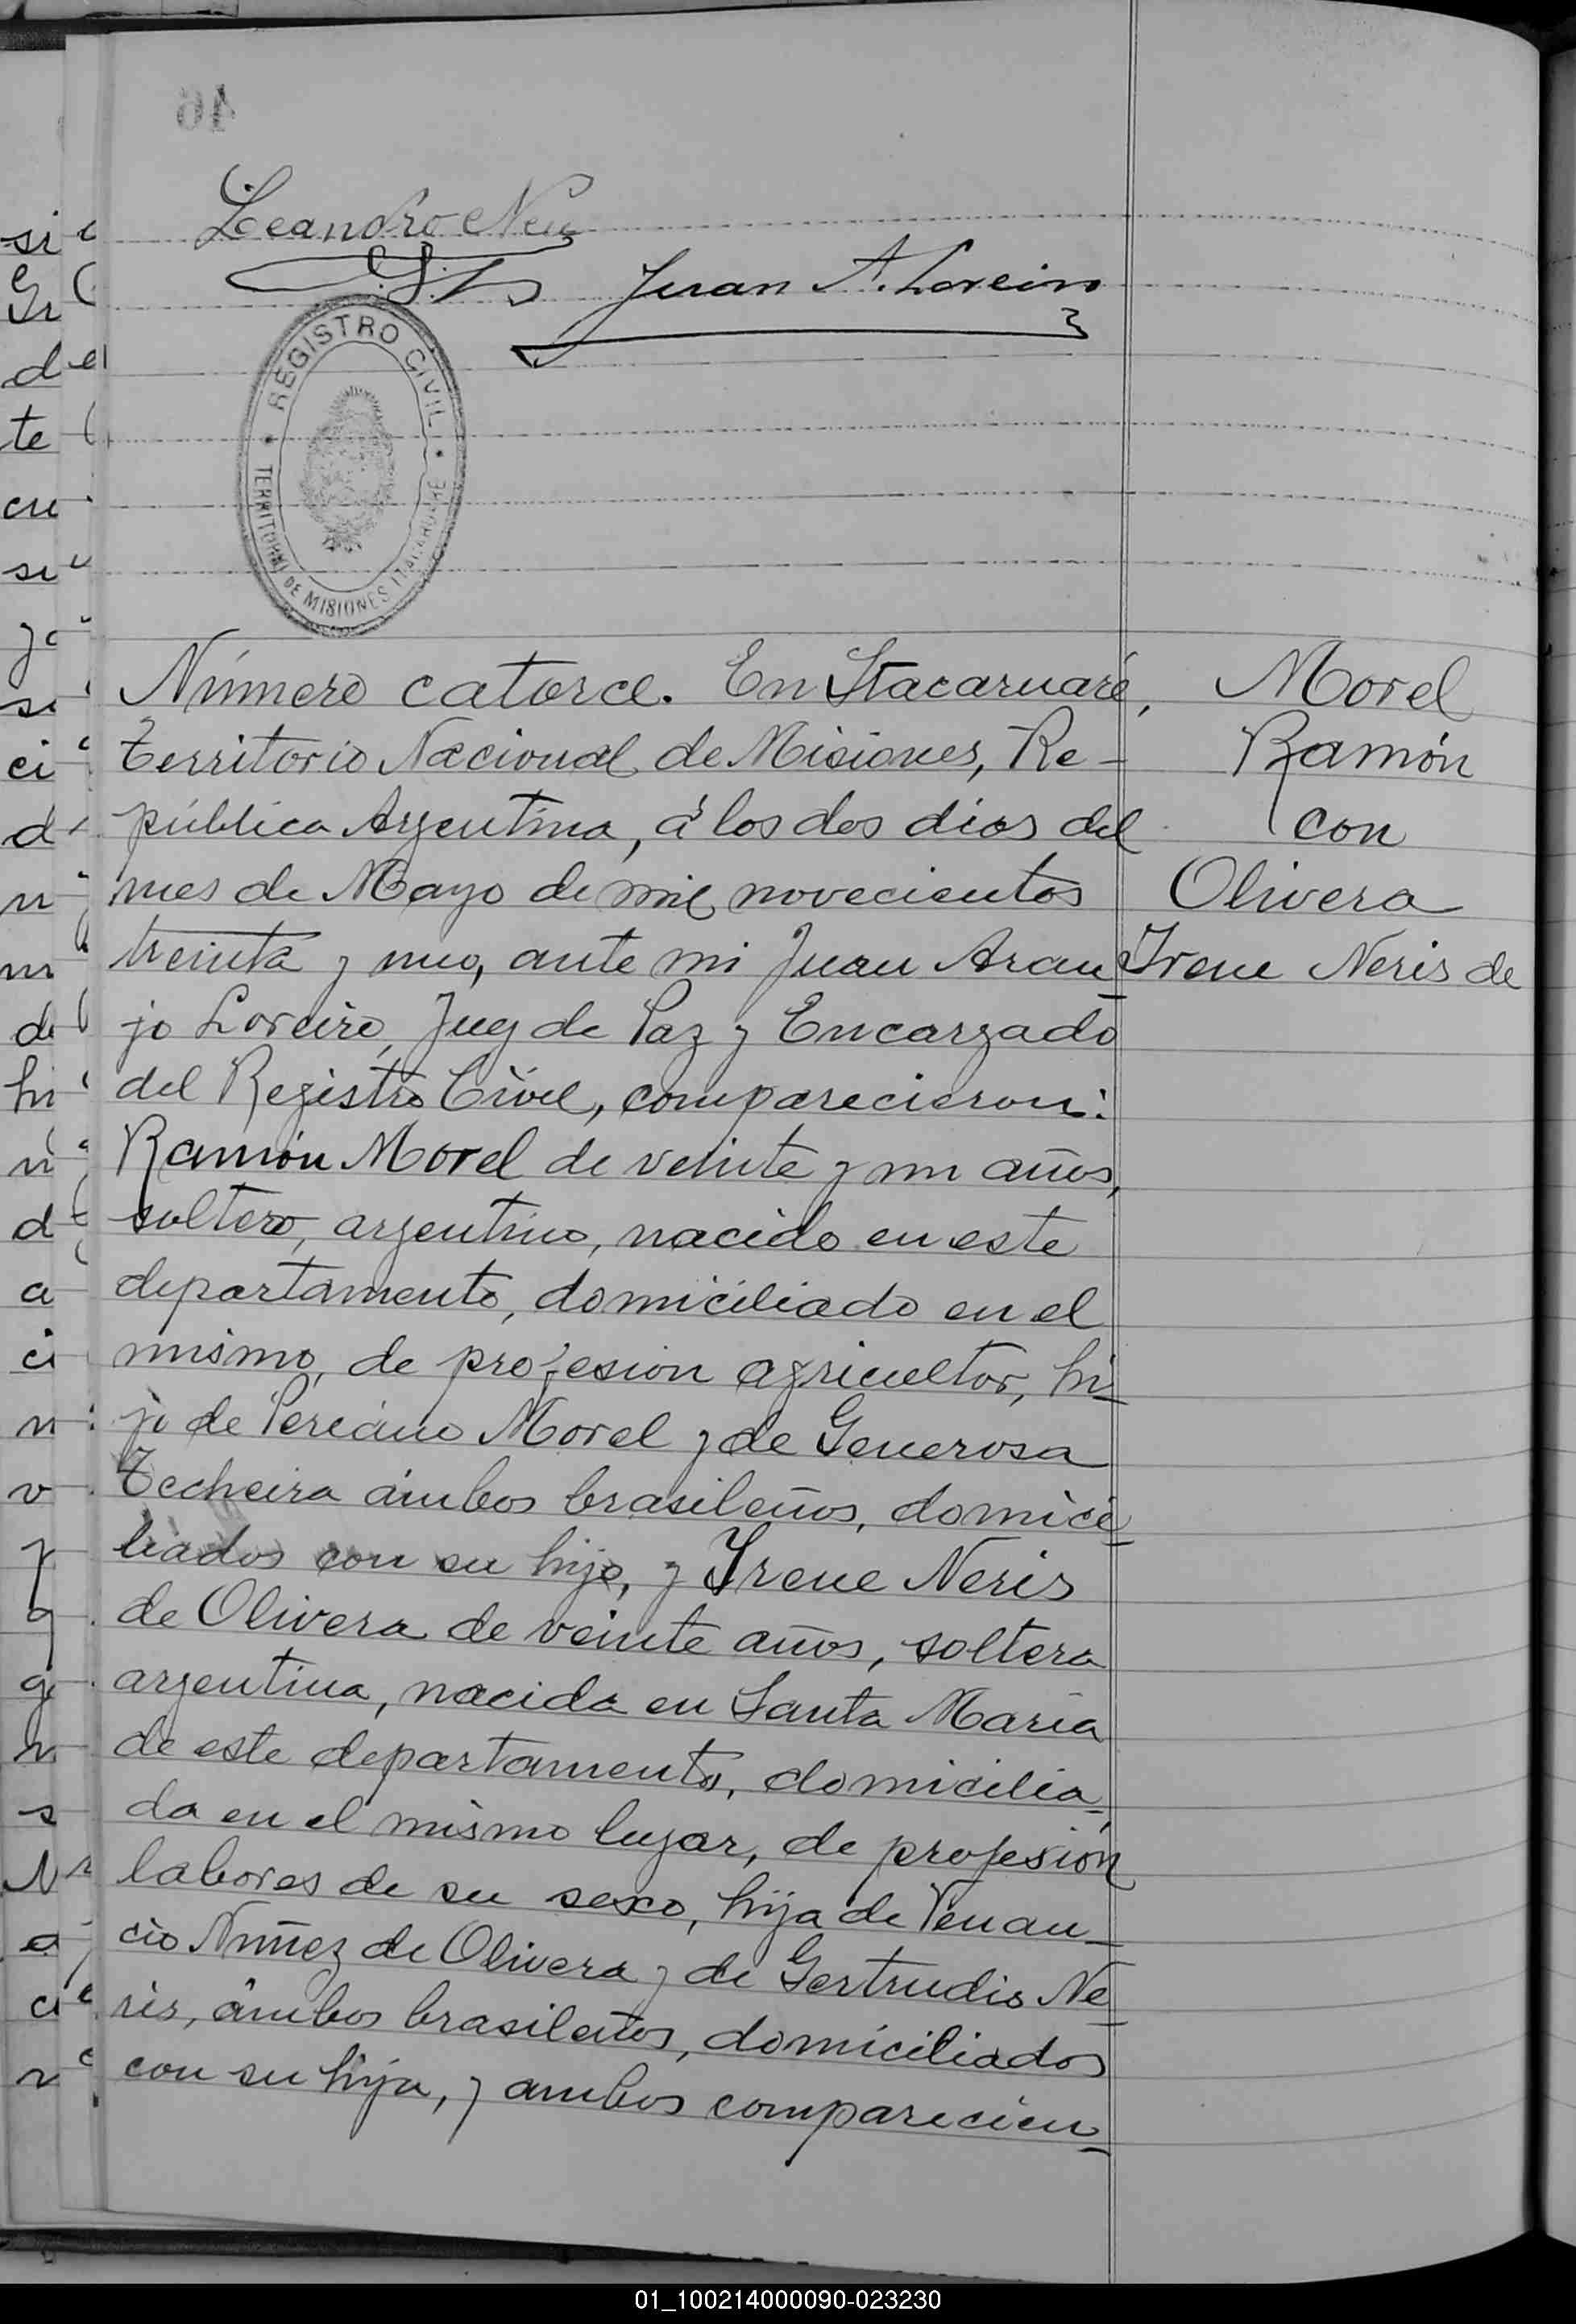 Leandro
Juan A. Loreiro
REGISTRO CIVIL
TERRITORIO DE MISIONES ITACARUARE
Número catorce. En Itacaruaré,
territorio Nacional de Misiones, Re-
pública Argentina, á los dos dias del
mes de Mayo de mil novecientos
treinta y uno, ante mi Juan Arau-
jo Loreiro, Juez de Paz y Encargado
del Registro Civil, comparecieron:
Ramón Morel de veinte y un años,
soltero, argentino, nacido en este
departamento, domiciliado en el
mismo, de profesion agricultor, hi-
jo de Morel y de Generosa
Techeira ámbos brasileños, domici-
liados con su hijo, y Irene Neris
de Olivera de veinte años, soltera
argentina, nacida en Santa Maria
de este departamento, domicilia-
da en el mismo lugar, de profesión
labores de su sexo, hija de Venan-
cio Nuñez de Olivera y de Gertrudis Ne-
ris, ámbos brasileños, domiciliados
con su hija, y ambos comparecien-
Morel
Ramón
con
Olivera
Irene Neris de
01_100214000090-023230